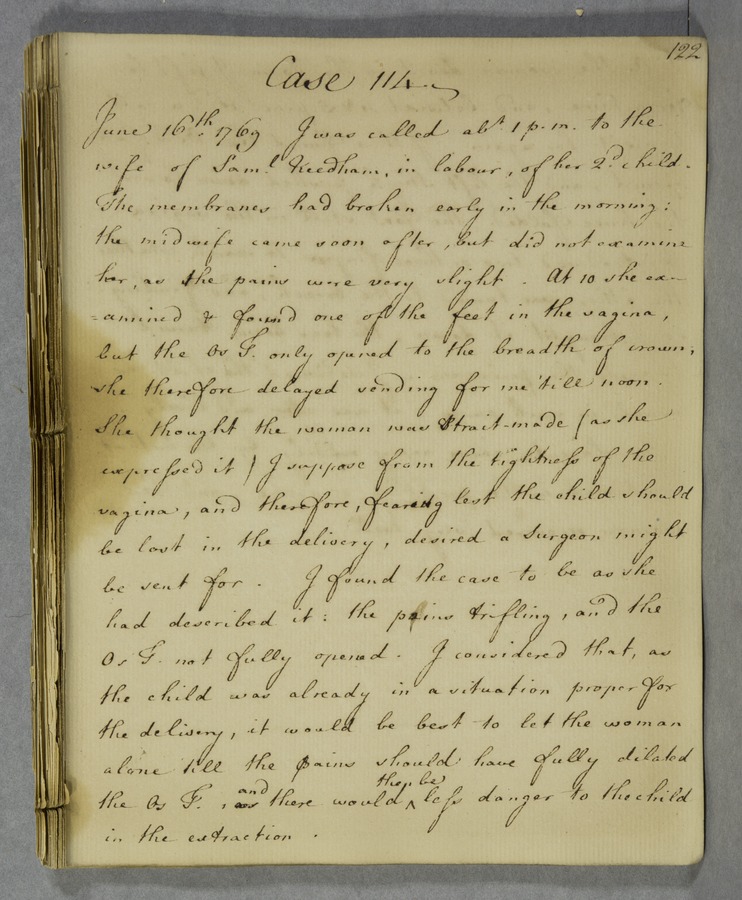 122
Case 114
June 16th. 1769 I was called abt. 1 p.m. to the
wife of Saml. Needham, in labour, of her 2d. child.
The membranes had broken early in the morning:
the midwife came soon after, but did not examine
her, as the pains were very slight. At 10 she ex-
-amined & found one of the feet in the vagina,
but the Os T. only opened to the breadth of crown,
she therefore delayed sending for me 'till noon.
She thought the woman was Strait-made (as she
expressed it) I suppose from the tightness of the
vagina, and therefore, fearing lest the child should
be lost in the delivery, desired a Surgeon might
be sent for. I found the case to be as she
had described it: the pains trifling, and the
Os T. not fully opened. I considered that, as
the child was already in a situation proper for
the delivery, it would be best to let the woman
alone till the pains should have fully dilated
the Os T., as and there would ^ then be less danger to the child
in the extraction.